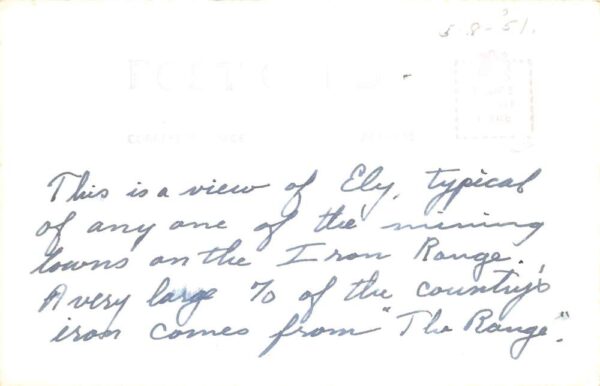 5 8-51.
POST CARD
CORRESPONDENCE ADDRESS
This is a view of Ely, typical
of any one of the mining
towns on the Iron Range.
A very large % of the country's
iron comes from "The Range".